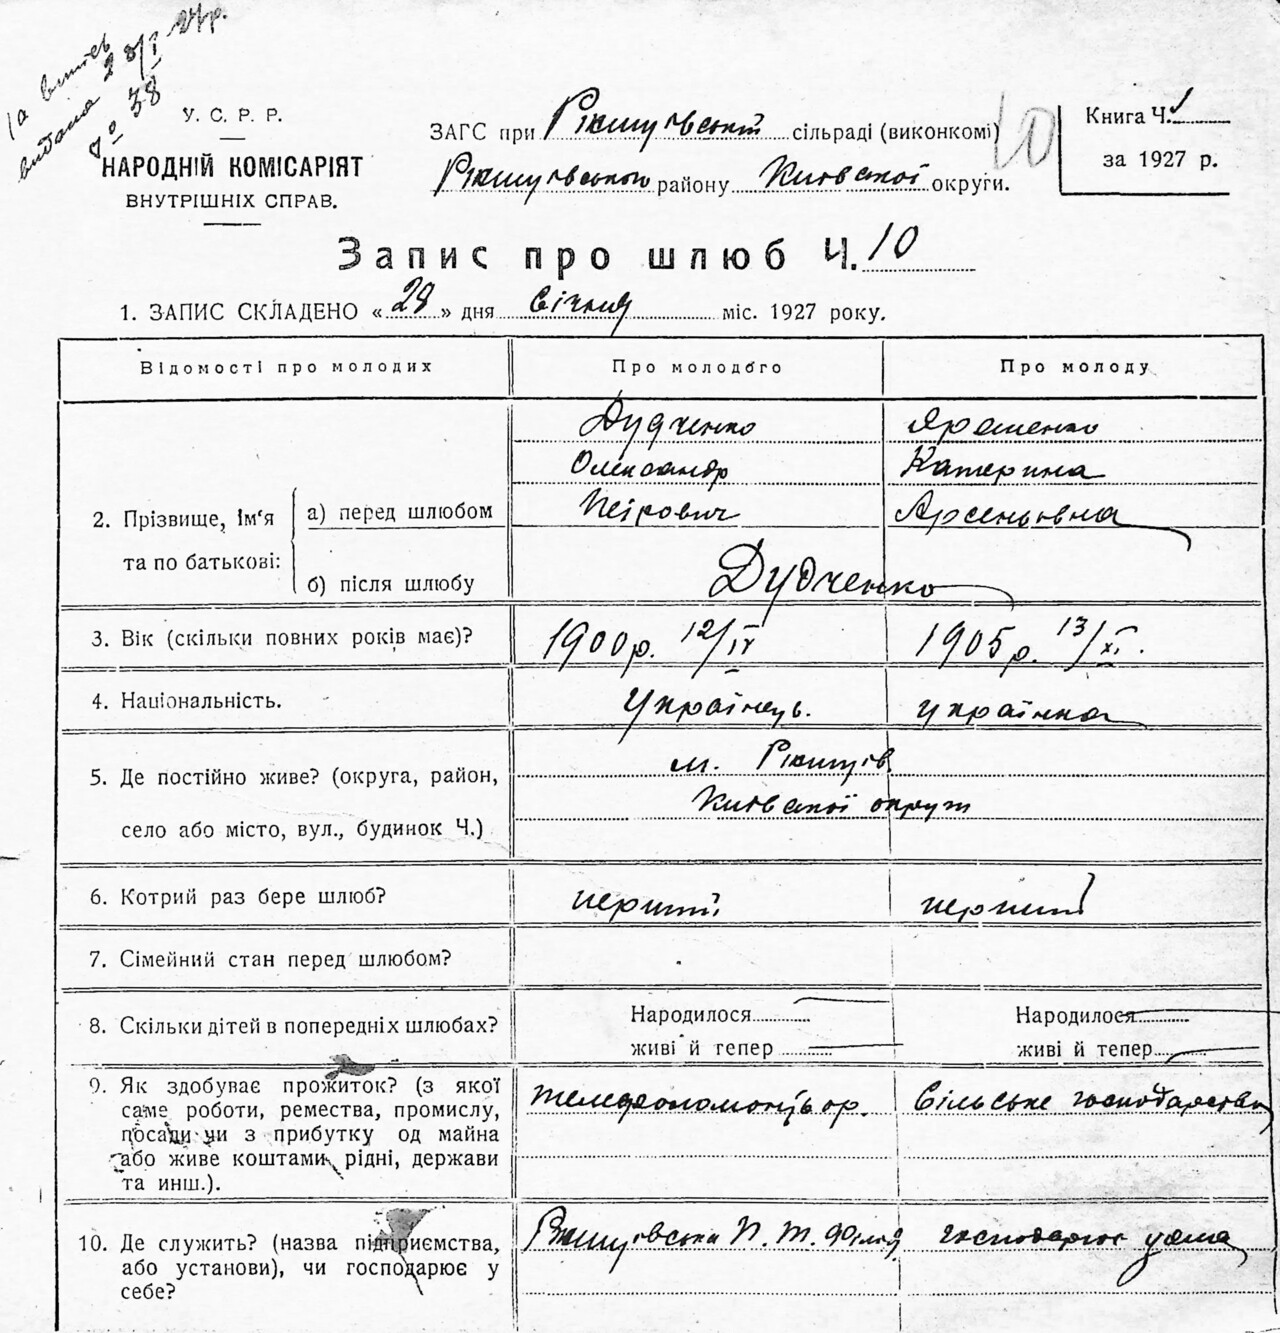 1а витяг
видана 28/I 27р.
№ 38
У. С. Р. Р.
НАРОДНІЙ КОМІСАРІЯТ
ВНУТРІШНІХ СПРАВ.
ЗАГС при Ржищівській сільраді (виконкомі)
Ржищівського району Київської округи.
10
Книга Ч. 1
за 1927 р.
Запис про шлюб Ч. 10
1. ЗАПИС СКЛАДЕНО « 28 » дня Січня міс. 1927 року.
Відомості про молодих
Про молодого
Про молоду
2. Прізвище, ім'я та по батькові:
а) перед шлюбом
Дудченко
Олександр
Петрович
Ярошенко
Катерина
Арсеньевна
б) після шлюбу
Дудченко
3. Вік (скільки повних років має)?
1900р. 12/IV
1905р. 13/XI.
4. Національність.
Українець.
українка
5. Де постійно живе? (округа, район,
село або місто, вул., будинок Ч.)
м. Ржищів
Київської округи
6. Котрий раз бере шлюб?
перший
перший
7. Сімейний стан перед шлюбом?
8. Скільки дітей в попередніх шлюбах?
Народилося
живі й тепер
Народилося
живі й тепер
9. Як здобуває прожиток? (з якої
саме роботи, ремества, промислу,
посади чи з прибутку од майна
або живе коштами рідні, держави
та инш.).
телефономонтьор.
Сільське господарство
10. Де служить? (назва підприємства,
або установи), чи господарює у
себе?
Ржищівська П. Т. Філія
господарює удома